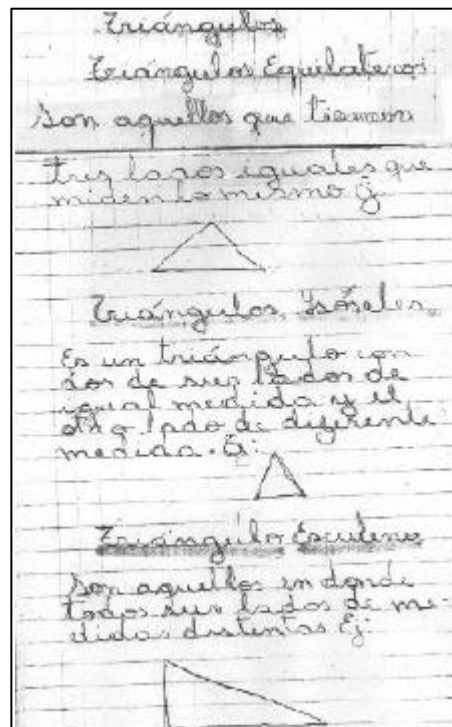 Triángulos
Triángulos Equilateros
Son aquellos que tienen
tres lados iguales que
miden lo mismo Ej
Triángulos Isóseles
Es un triángulo con
dos de sus lados de
igual medida y el
otro lado de diferente
medida. Ej:
Triángulo Escaleno
Son aquellos en donde
todos sus lados de me-
didas distintas Ej: